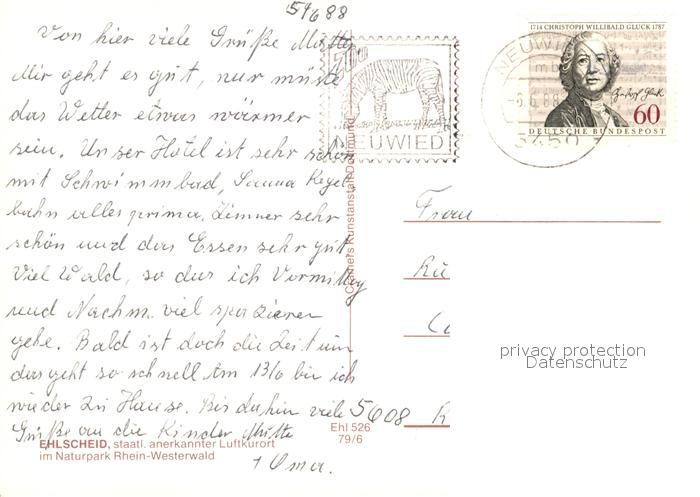 5/6 88
Von hier viele Grüße Mutter
Mir geht es gut, nur müste
das Wetter etwas wärmer
sein. Unser Hotel ist sehr schön
mit Schwimmbad, Sauna Kegel
bahn alles prima. Zimmer sehr
schön und das Essen sehr gut
Viel Wald, so das ich Vormittag
und Nachm. viel spazieren
gehe. Bald ist doch die Zeit um
das geht so schnell Am 13/6 bin ich
wieder zu Hause. Bis dahin viele
Grüße an die Kinder Mutti
+ Oma.
EHLSCHEID, staatl. anerkannter Luftkurort
im Naturpark Rhein-Westerwald
Ehl 526
79/6
Cramers Kunstanstalt Dortmund
NEUWIED
1714 CHRISTOPH WILLIBALD GLUCK 1787
60
DEUTSCHE BUNDESPOST
NEUWIED
5450
Frau
5608
privacy protection
Datenschutz